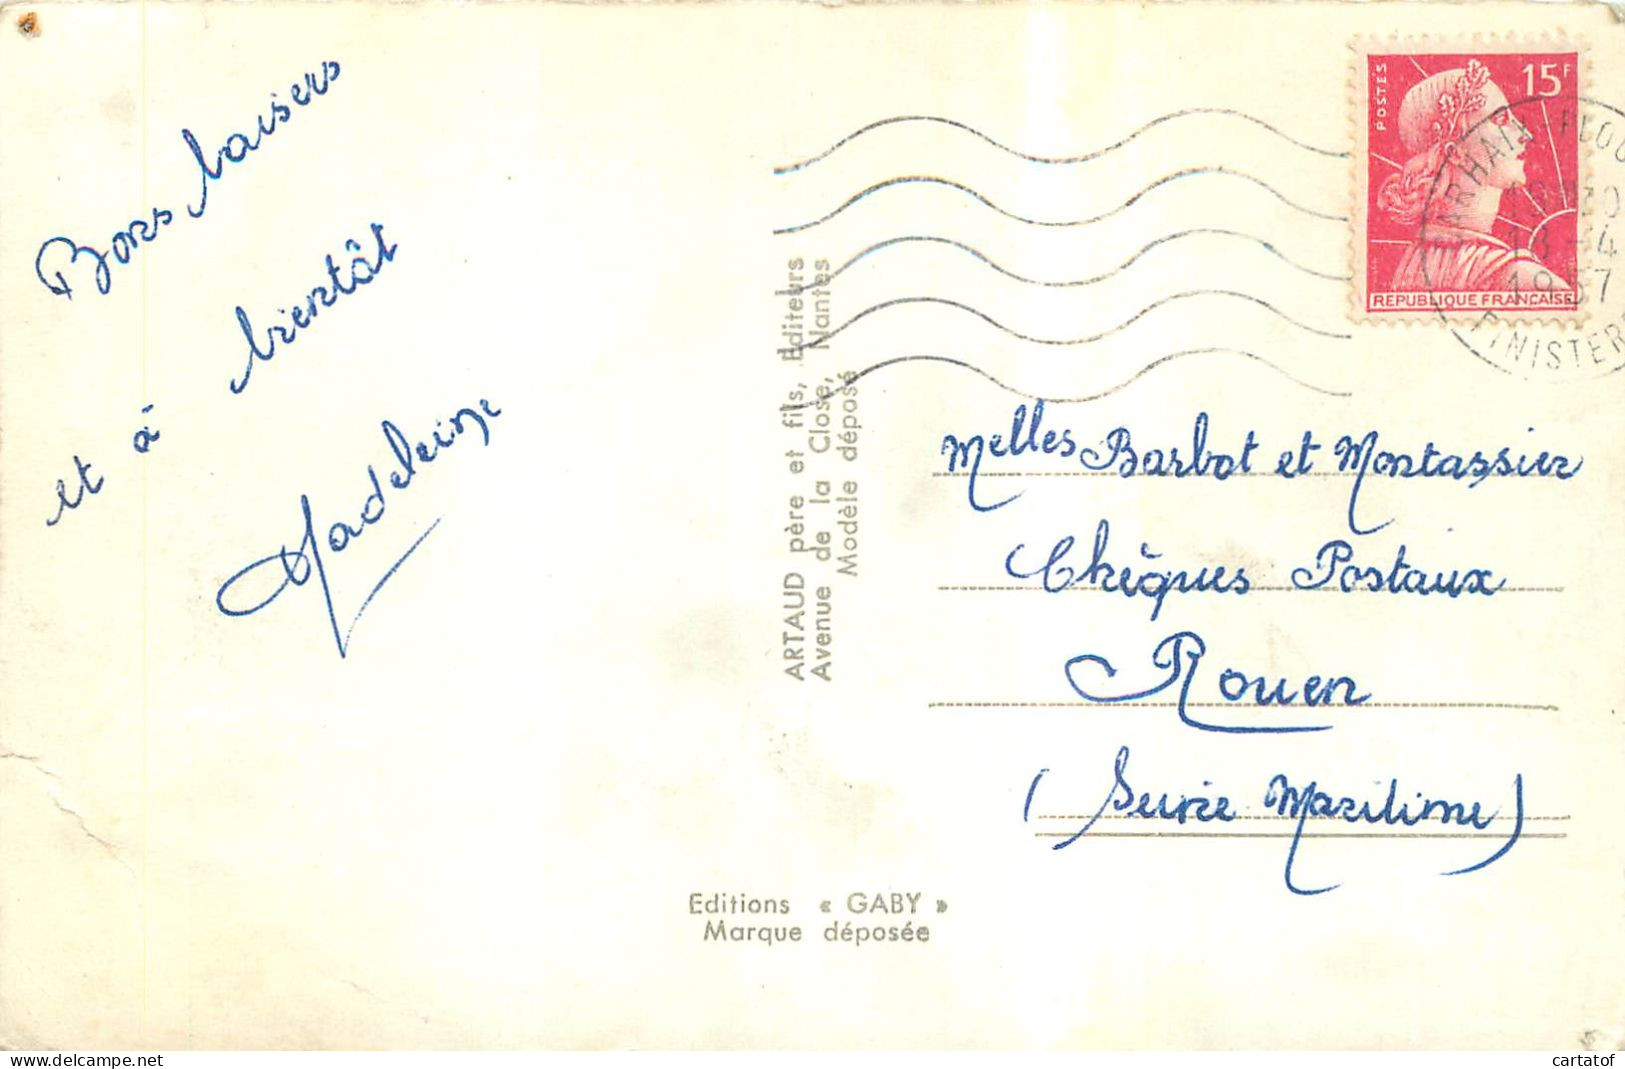 Bons baisers
et à bientôt
Madeleine
ARTAUD père et fils, Editeurs
Avenue de la Close, Nantes
Modèle déposé
Editions « GABY »
Marque déposée
POSTES
15F
REPUBLIQUE FRANÇAISE
CARHAIX PLOU
18-4
1957
FINISTERE
Melles Barbot et Montassier
Chèques Postaux
Rouen
(Seine Maritime)
cartatof